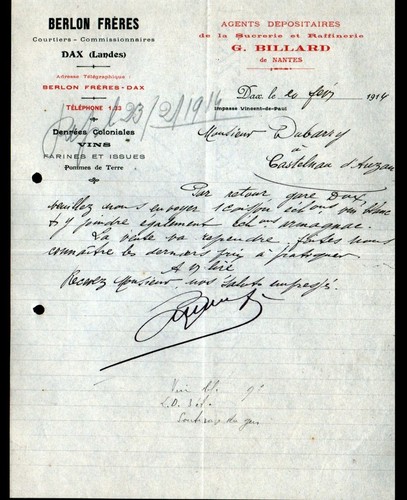 BERLON FRÈRES
Courtiers - Commissionnaires
DAX (Landes)
Adresse Télégraphique
BERLON FRÈRES-DAX
TÉLÉPHONE 1.23
Denrées Coloniales
VINS
FARINES ET ISSUES
Pommes de Terre
AGENTS DEPOSITAIRES
de la Sucrerie et Raffinerie
G. BILLARD
de NANTES
Dax, le 20 1914
Impasse Vincent-de-Paul
23/2/1914
Monsieur Dubarry
à
Castelnau d'Auzan
Par retour gare Dax
veuillez nous envoyer vin blanc
& y joindre également armagnac.
La vente va reprendre, faites nous
connaître les derniers prix à pratiquer
A vs lire
Recevez Monsieur, nos saluts empressés